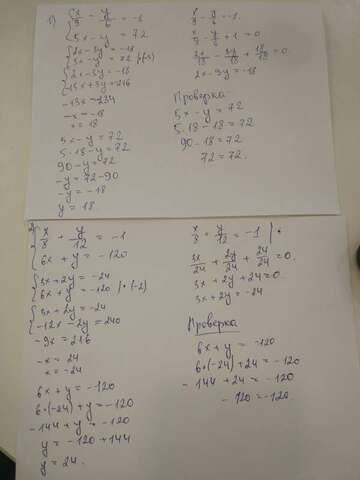 1) { x/9 - y/6 = -1
5x - y = 72
{ 2x - 3y = -18
5x - y = 72 | (-3)
{ 2x - 3y = -18
-15x + 3y = -216
-13x = -234
-x = -18
x = 18
5x - y = 72
5·18 - y = 72
90 - y = 72
-y = 72 - 90
-y = -18
y = 18.
x/9 - y/6 = -1.
x/9 - y/6 + 1 = 0
2x/18 - 3y/18 + 18/18 = 0
2x - 3y = -18
Проверка:
5x - y = 72
5·18 - 18 = 72
90 - 18 = 72
72 = 72.
2) { x/8 + y/12 = -1
6x + y = -120
{ 3x + 2y = -24
6x + y = -120 | · (-2)
{ 3x + 2y = -24
-12x - 2y = 240
-9x = 216
-x = 24
x = -24
6x + y = -120
6·(-24) + y = -120
-144 + y = -120
y = -120 + 144
y = 24.
x/8 + y/12 = -1
3x/24 + 2y/24 + 24/24 = 0.
3x + 2y + 24 = 0.
3x + 2y = -24
Проверка
6x + y = -120
6·(-24) + 24 = -120
-144 + 24 = -120
-120 = -120.